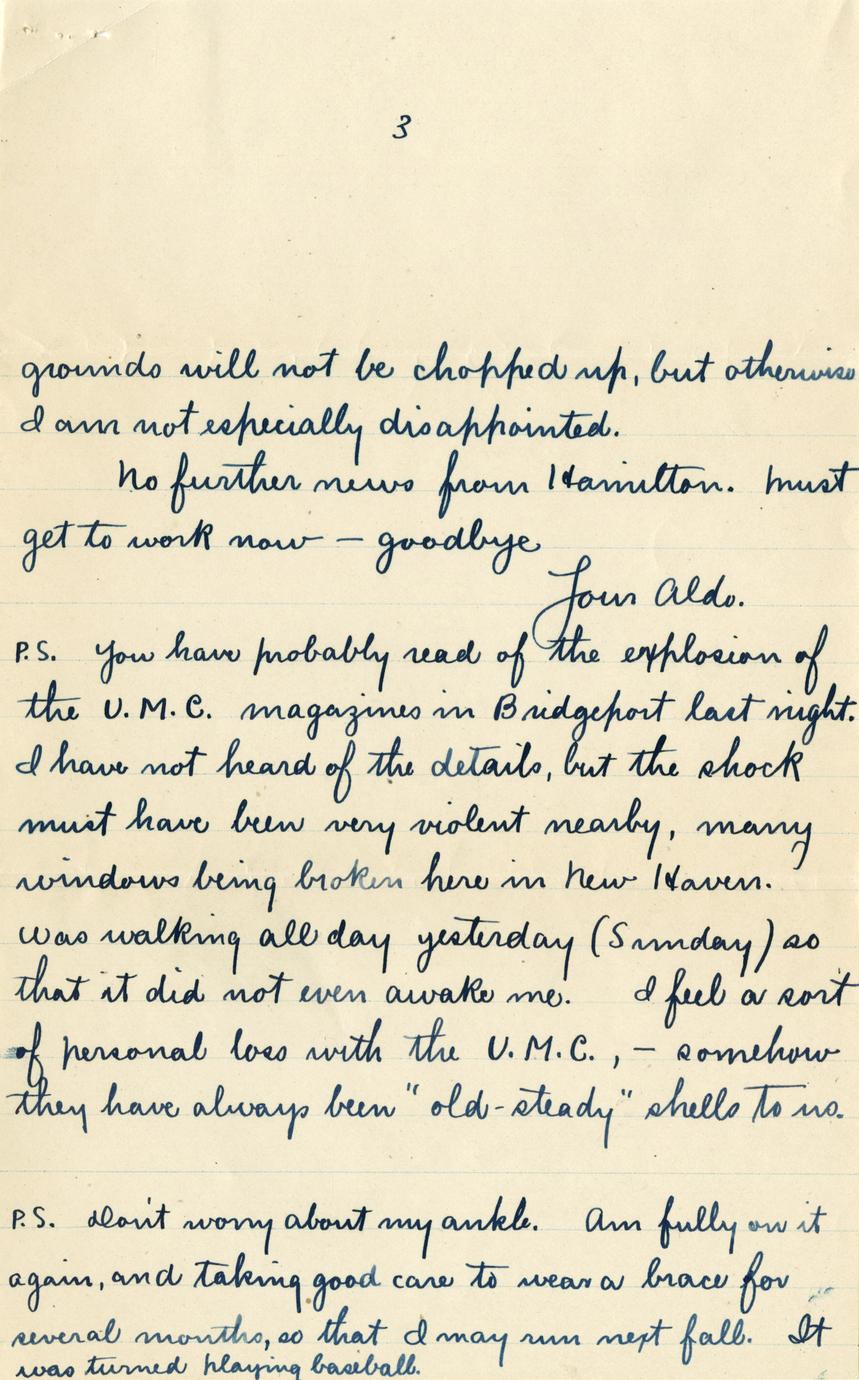 3
grounds will not be chopped up, but otherwise
I am not especially disappointed.
No further news from Hamilton. Must
get to work now — goodbye
Your Aldo.
P.S. You have probably read of the explosion of
the U.M.C. magazines in Bridgeport last night.
I have not heard of the details, but the shock
must have been very violent nearby, many
windows being broken here in New Haven.
Was walking all day yesterday (Sunday) so
that it did not even awake me. I feel a sort
of personal loss with the U.M.C., — somehow
they have always been "old-steady" shells to us.
P.S. Don't worry about my ankle. Am fully on it
again, and taking good care to wear a brace for
several months, so that I may run next fall. It
was turned playing baseball.